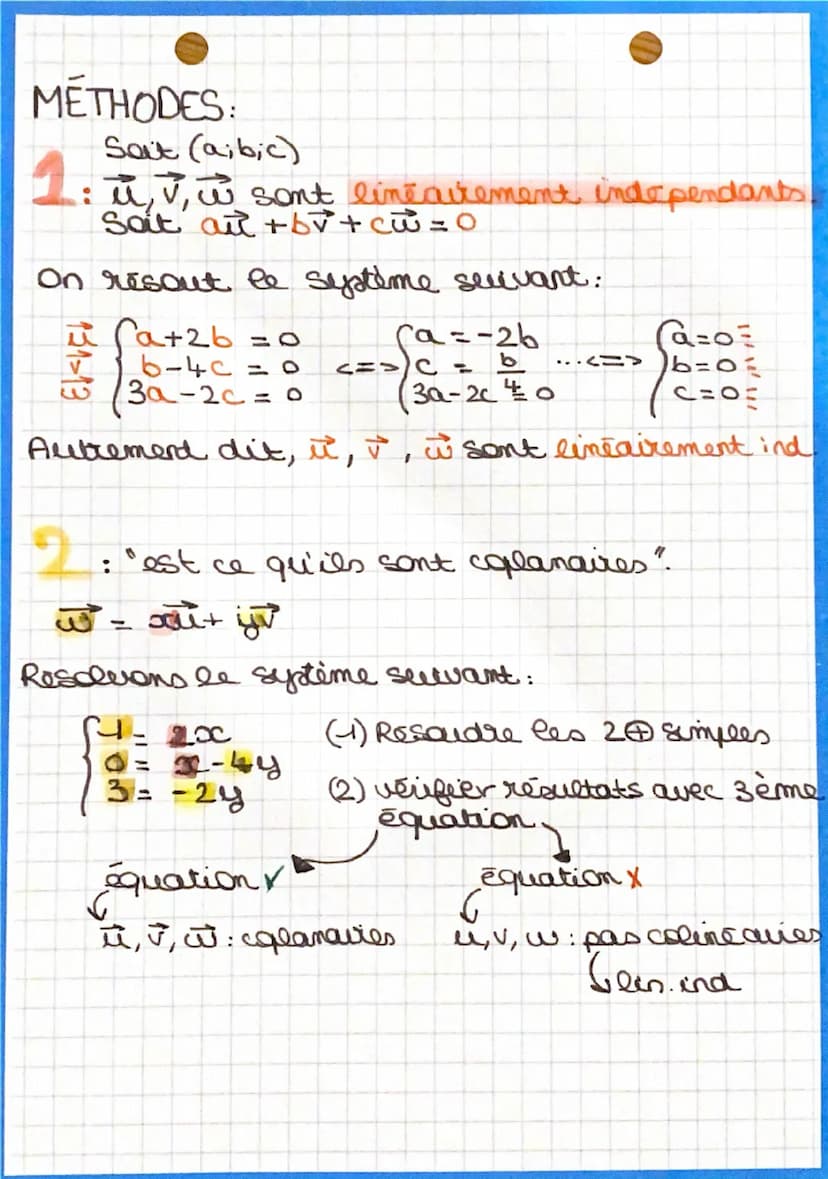 MÉTHODES:
Soit (a;b;c)
1: u⃗, v⃗, w⃗ sont linéairement indépendants.
Soit au⃗ + bv⃗ + cw⃗ = 0
On résout le système suivant:
u⃗ { a+2b = 0 { a = -2b { a=0
v⃗ { b-4c = 0 <=> { c = b/4 ...<=> { b=0
w⃗ { 3a-2c = 0 { 3a-2c = 0 { c=0
Autrement dit, u⃗, v⃗, w⃗ sont linéairement ind
2: "est ce qu'ils sont coplanaires".
w⃗ = xu⃗ + yv⃗
Resolvons le système suivant:
{ -1 = 2x (1) Résoudre les 2 ⊕ simples
{ 0 = x-4y
{ 3 = -2y (2) vérifier résultats avec 3ème
équation
équation ✓ équation ✗
u⃗, v⃗, w⃗ : coplanaires u, v, w : pas colinéaires
lin. ind